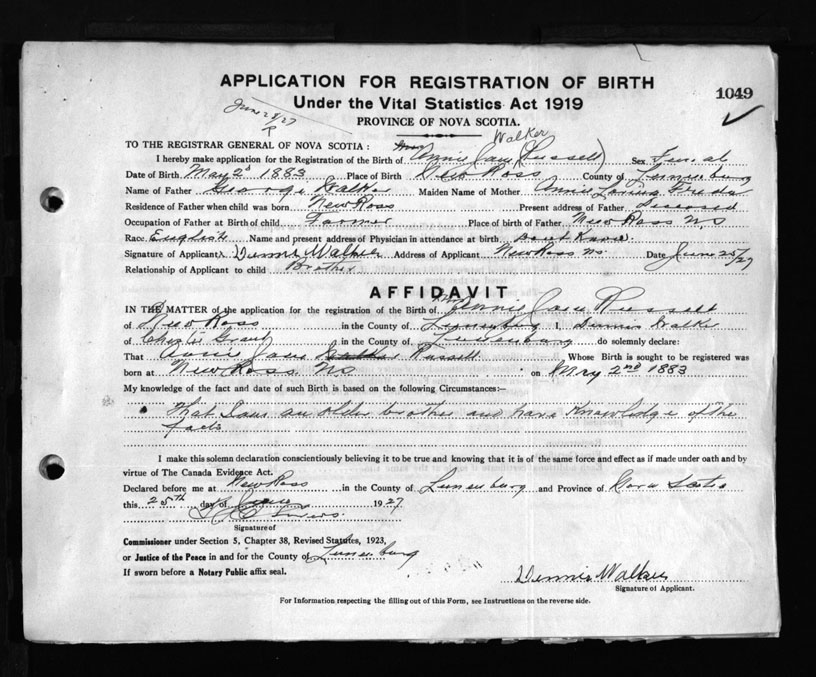 APPLICATION FOR REGISTRATION OF BIRTH
1049
Under the Vital Statistics Act 1919
June 28/27
PROVINCE OF NOVA SCOTIA.
Walker
TO THE REGISTRAR GENERAL OF NOVA SCOTIA :
I hereby make application for the Registration of the Birth of Annie Jane (Russell) Sex Female
Date of Birth May 2d 1883 Place of Birth New Ross County of Lunenburg
Name of Father George Walker Maiden Name of Mother Annie
Residence of Father when child was born New Ross Present address of Father deceased
Occupation of Father at Birth of child Farmer Place of birth of Father New Ross N.S
Race English Name and present address of Physician in attendance at birth
Signature of Applicant Dennis Walker Address of Applicant New Ross N.S. Date June 25/27
Relationship of Applicant to child Brother
AFFIDAVIT
IN THE MATTER of the application for the registration of the Birth of Annie Jane Russell
of New Ross in the County of Lunenburg I, Dennis Walker
of Grant in the County of Lunenburg do solemnly declare:
That Annie Jane Russell Whose Birth is sought to be registered was
born at New Ross N.S on May 2nd 1883
My knowledge of the fact and date of such Birth is based on the following Circumstances:-
That I am an older brother and have Knowledge of the
facts
I make this solemn declaration conscientiously believing it to be true and knowing that it is of the same force and effect as if made under oath and by
virtue of The Canada Evidence Act.
Declared before me at New Ross in the County of Lunenburg and Province of Nova Scotia
this 25th day of June 1927
Signature of
Commissioner under Section 5, Chapter 38, Revised Statutes, 1923,
or Justice of the Peace in and for the County of Lunenburg
If sworn before a Notary Public affix seal.
Dennis Walker
Signature of Applicant.
For Information respecting the filling out of this Form, see Instructions on the reverse side.